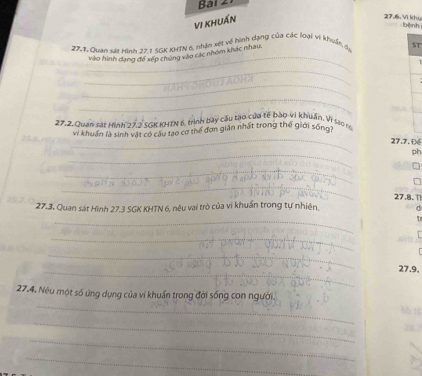 Bài 27
VI KHUẨN
27.1. Quan sát Hình 27.1 SGK KHTN 6, nhận xét về hình dạng của các loại vi khuẩn,
vào hình dạng để xếp chúng vào các nhóm khác nhau.
27.2. Quan sát Hình 27.2 SGK KHTN 6, trình bày cấu tạo của tế bào vi khuẩn. Vì sao
vi khuẩn là sinh vật có cấu tạo cơ thể đơn giản nhất trong thế giới sống?
27.3. Quan sát Hình 27.3 SGK KHTN 6, nêu vai trò của vi khuẩn trong tự nhiên.
27.4. Nêu một số ứng dụng của vi khuẩn trong đời sống con người.
27.6. Vi khu
bệnh
ST
27.7. Để
ph
27.8. Tl
d
tr
27.9.